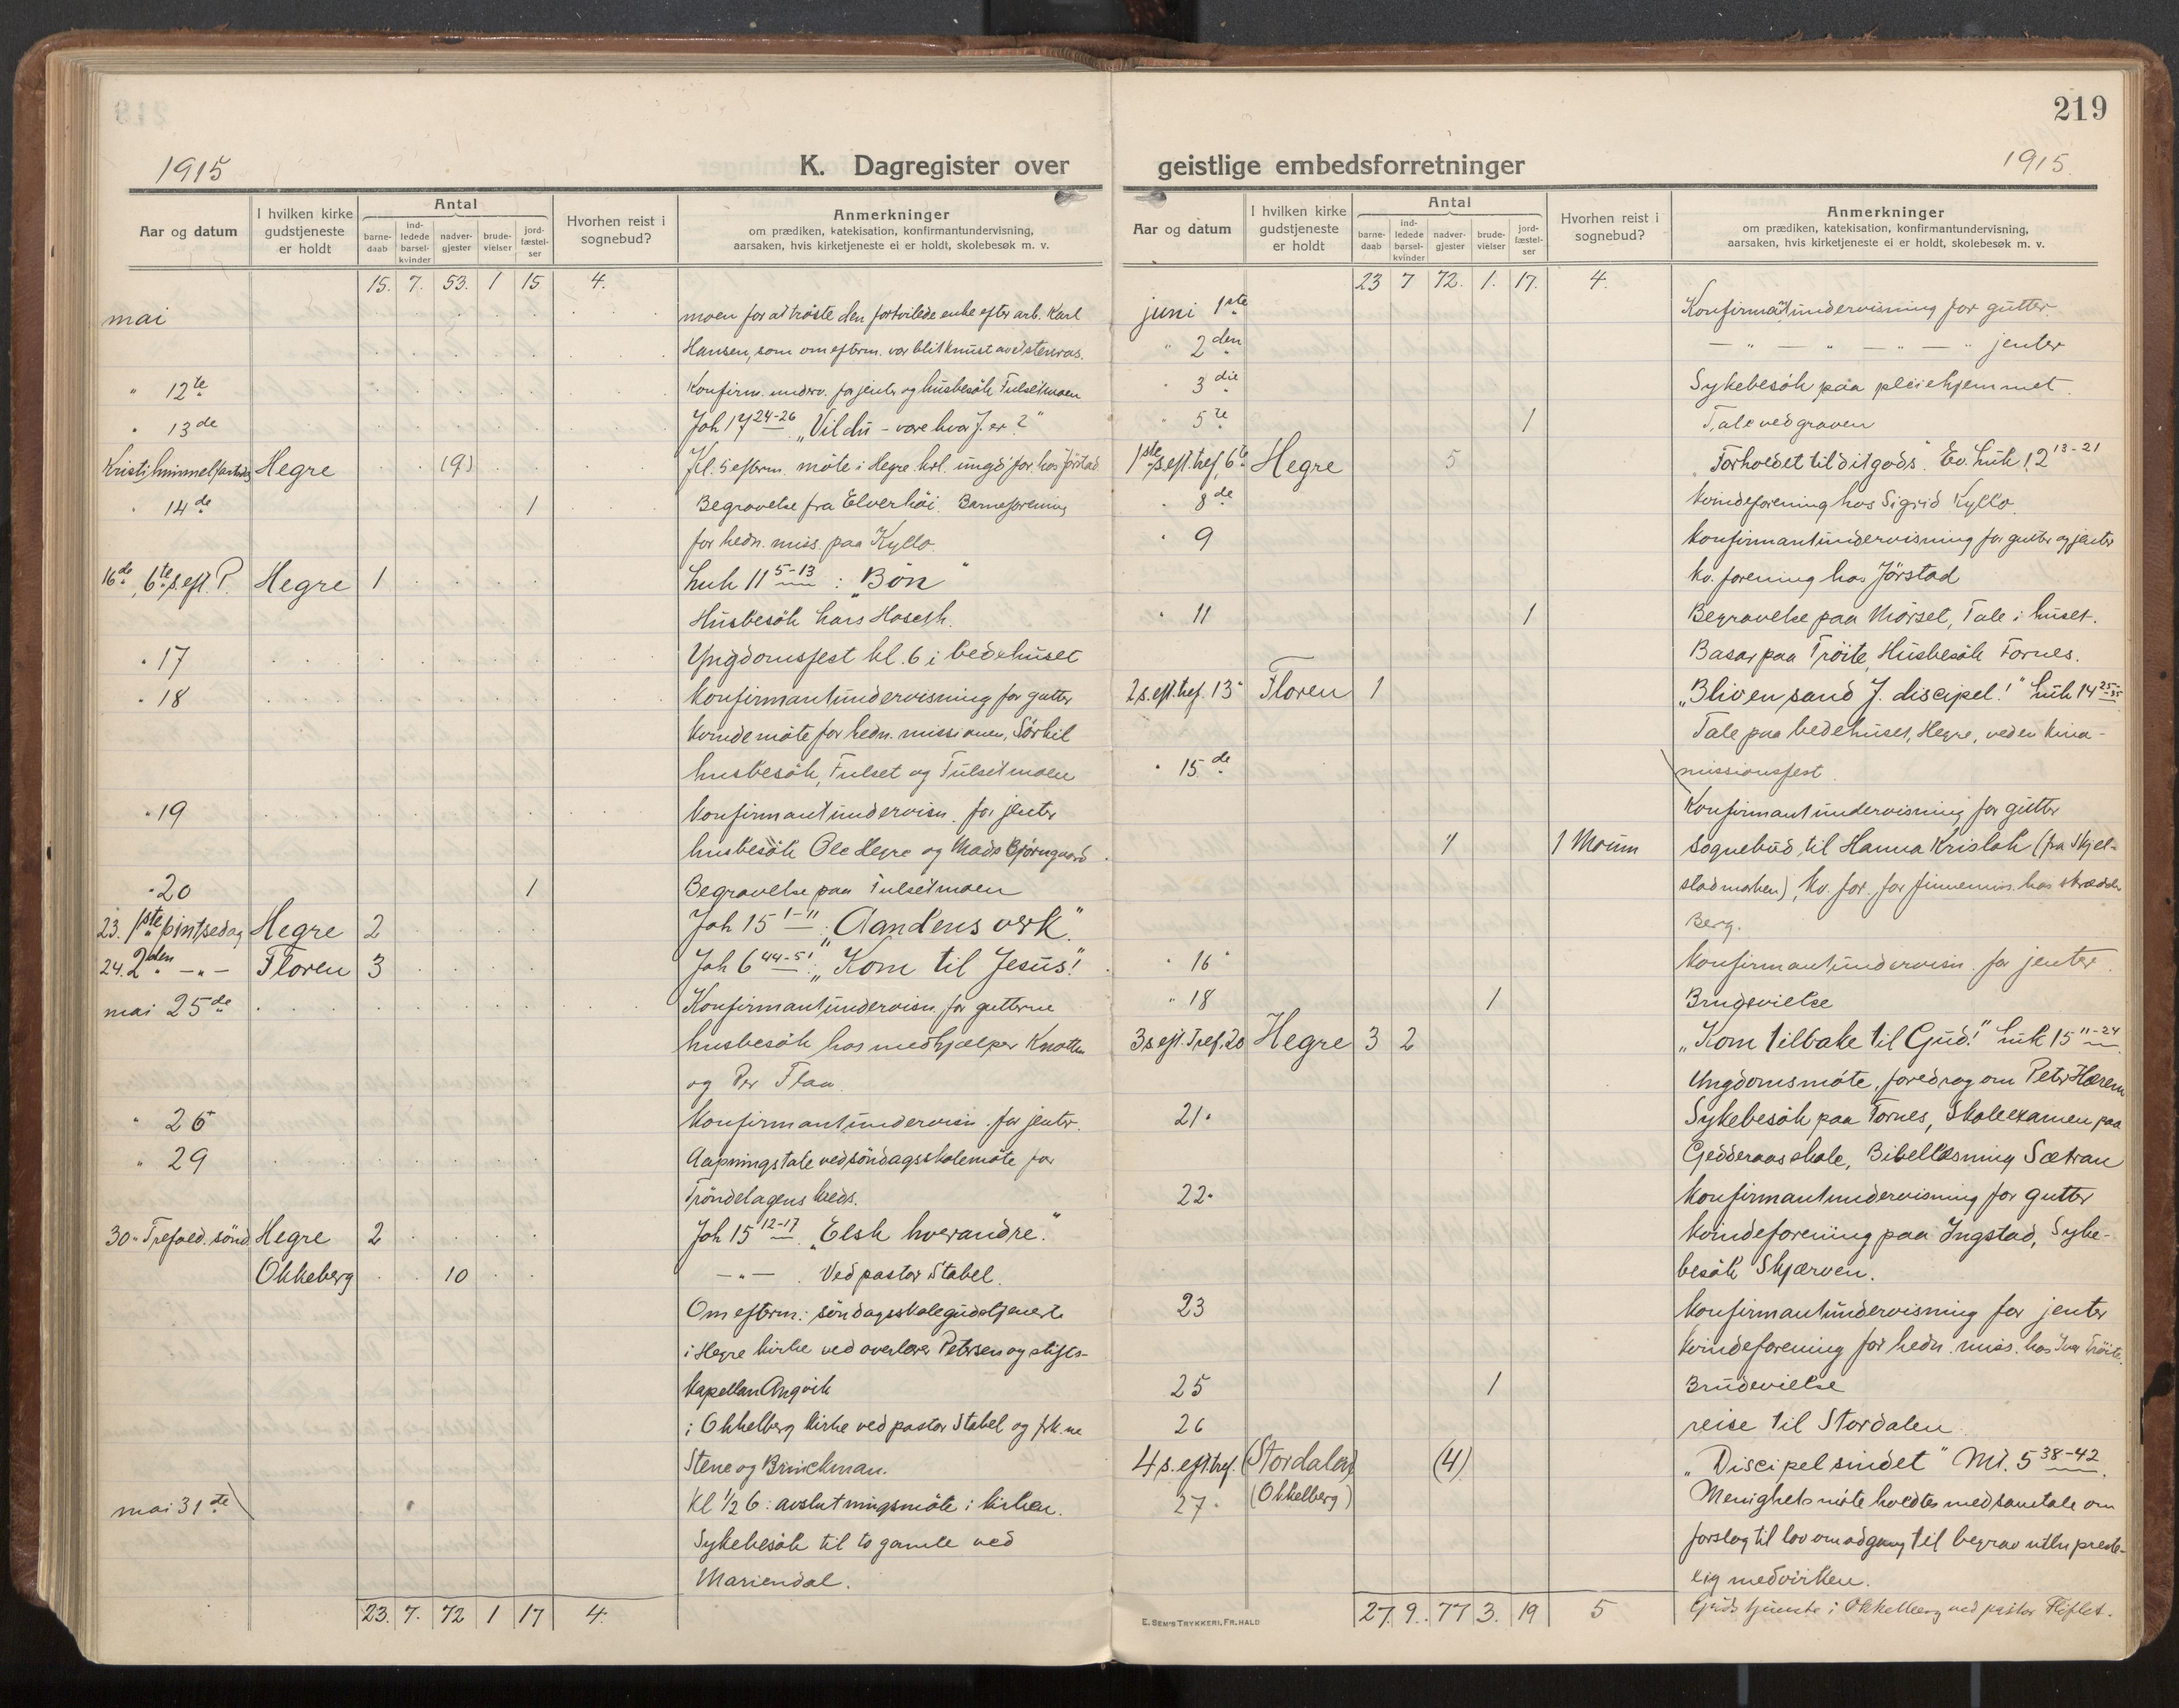 219
1915
K. Dagregister over
geistlige embedsforretninger
1915.
Aar og datum
I hvilken kirke gudstjeneste er holdt
Antal
barne-daab
ind-ledede barsel-kvinder
nadver-gjester
brude-vielser
jord-fæstel-ser
Hvorhen reist i sognebud?
Anmerkninger
om prædiken, katekisation, konfirmantundervisning,
aarsaken, hvis kirketjeneste ei er holdt, skolebesøk m. v.
15. 7. 53. 1 15 4.
mai moen for at trøste den fortvilede enke efter arb. Karl
Hansen, som om efterm. var blit knust av et stenras.
" 12te Konfirm. underv. for jenter og husbesøk Fulsetmoen
" 13de Joh 17 24-26 "Vil du - være hvor J. er?"
Kristi himmelfartsdag Hegre (9) Kl. 5 efterm. møte i Hegre krl. ungd.for. hos Jørstad
" 14de 1 Begravelse fra Elverhøi. Barneforening
for hedn. miss. paa Kyllo.
16de, 6te s. eft. P. Hegre 1 Luk 11 5-13 : "Bøn"
Husbesøk Lars Hoseth.
" 17 Yngdomsfest kl. 6 i bedehuset
" 18 Konfirmantundervisning for gutter
Kvindemøte for hedn. missionen, Sørkil
husbesøk, Fulset og Fulsetmoen
" 19 Konfirmantundervisn. for jenter
husbesøk Ole Hegre og Mads Bjørngaard
" 20 1 Begravelse paa Fulsetmoen
23. 1ste pintsedag Hegre 2 Joh 15 1-11 : "Aandens verk".
24. 2den -"- Floren 3 Joh 6 44-51 : "Kom til Jesus!"
mai 25de Konfirmantundervisn. for gutterne
husbesøk hos medhjælper Knotten
og Per Flaa.
" 26 Konfirmantundervisn. for jenter.
" 29 Aapningstale ved søndagsskolemøte for
Trøndelagens kreds.
30" Trefold. sønd. Hegre 2 Joh 15 12-17 "Elsk hverandre."
Okkelberg 10 -"- . Ved pastor Stabel.
Om efterm.: søndagsskolegudstjeneste
i Hegre kirke ved overlærer Petersen og stifts-
kapellan Angvik
i Okkelberg kirke ved pastor Stabel og frk.ne
Stene og Brinchman.
mai 31te Kl ½ 6 : avslutningsmøte i kirken.
Sykebesøk til to gamle ved
Mariendal.
23. 7. 72 1 17 4.
Aar og datum
I hvilken kirke gudstjeneste er holdt
Antal
barne-daab
ind-ledede barsel-kvinder
nadver-gjester
brude-vielser
jord-fæstel-ser
Hvorhen reist i sognebud?
Anmerkninger
om prædiken, katekisation, konfirmantundervisning,
aarsaken, hvis kirketjeneste ei er holdt, skolebesøk m. v.
23 7 72. 1. 17. 4.
juni 1ste Konfirmantundervisning for gutter.
" 2den — " — " — " — " jenter
" 3die Sykebesøk paa pleiehjemmet.
" 5te 1 Tale ved graven
1ste s. eft. tref. 6te Hegre 5 "Forholdet til dit gods". Ev. Luk 12 13-21
" 8de Kvindeforening hos Sigrid Kyllo.
" 9 Konfirmantundervisning for gutter og jenter
kv. forening hos Jørstad
" 11 1 Begravelse paa Mørset, Tale i huset.
Basar paa Trøite, Husbesøk Fornes.
2 s. eft. tref. 13" Floren 1 "Bli en sand J. discipel!" Luk 14 25-35
Tale paa bedehuset, Hegre, ved en Kina-
" 15de missionsfest.
Konfirmantundervisning for gutter
1 1 Moum Sognebud til Hanna Krislok (fra Skjel-
stadmarken), kv. for. for finnemis. hos skrædder
Berg.
" 16" Konfirmantundervisn. for jenter.
" 18 1 Brudevielse
3 s. eft. Tref. 20 Hegre 3 2 "Kom tilbake til Gud!" Luk 15 11-24
Ungdomsmøte, foredrag om Peter Hærem
21" Sykebesøk paa Fornes, Skoleexamen paa
Gedderaas skole, Bibellæsning Sætran
22" Konfirmantundervisning for gutter
Kvindeforening paa Ingstad, Syke-
besøk Skjærven.
23 Konfirmantundervisning for jenter
Kvindeforening for hedn. miss. hos Iver Trøite.
25 1 Brudevielse
26 reise til Stordalen
4 s. eft. tref. (Stordalen) (4) "Discipelsindet" Mt. 5 38-42.
27" (Okkelberg) Menighetsmøte holdtes med samtale om
forslag til lov om adgang til begrav. uten preste-
lig medvirken.
27. 9. 77 3. 19 5 Gudstjeneste i Okkelberg ved pastor Fliflet.
E. SEM'S TRYKKERI, FR.HALD